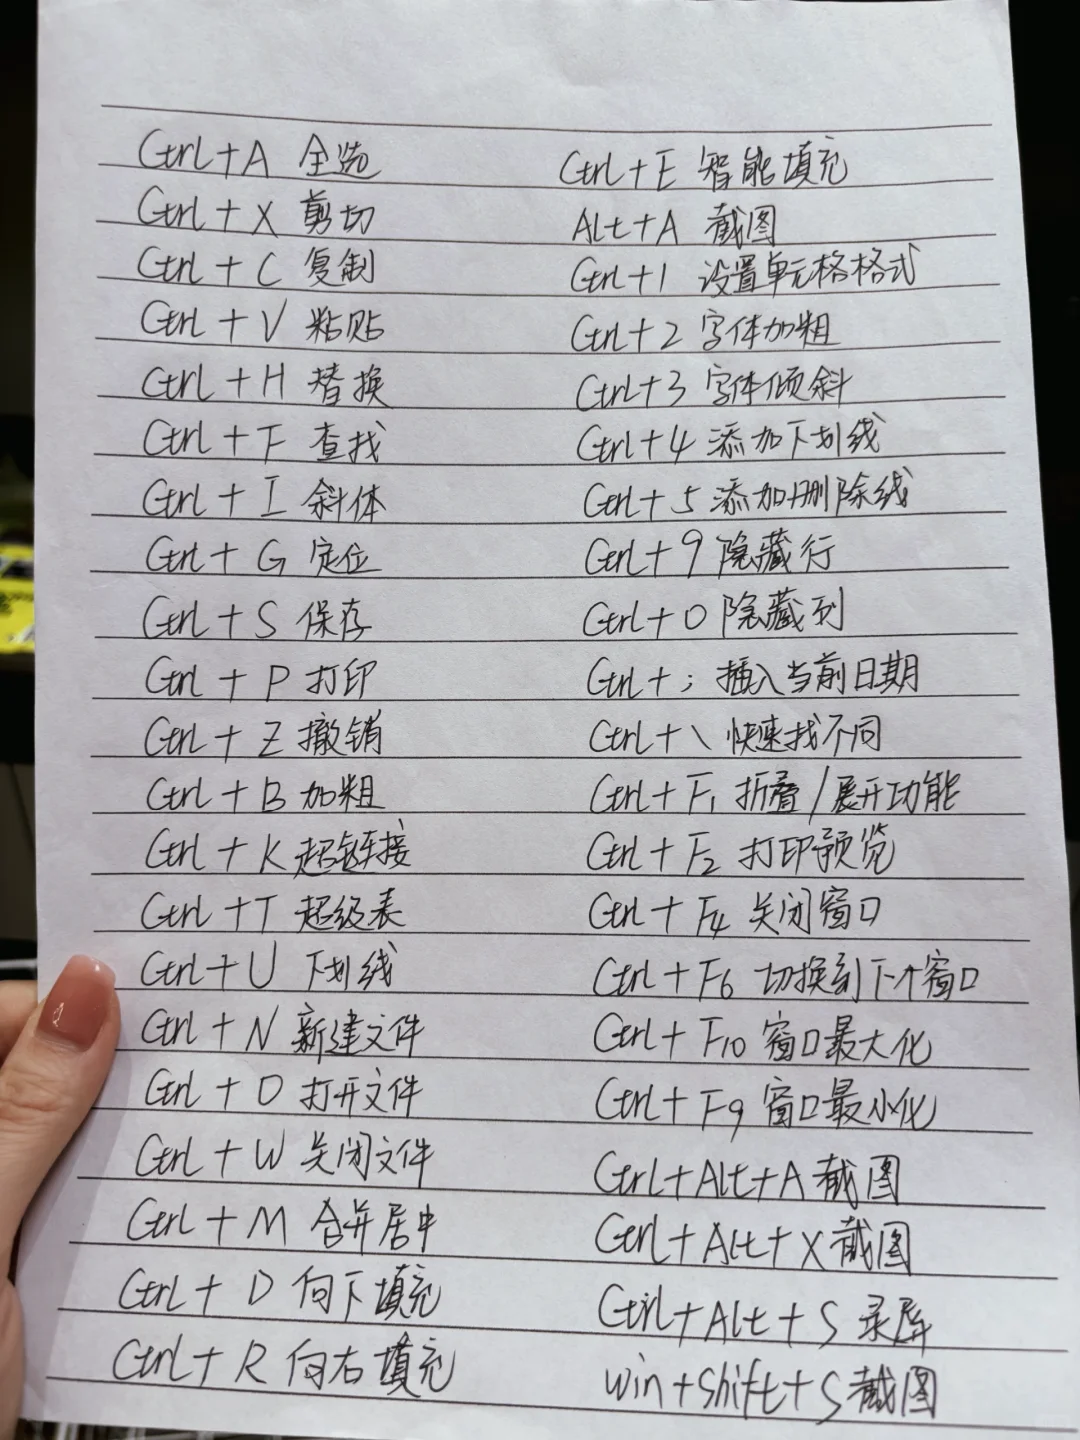 Ctrl+A 全选
Ctrl+X 剪切
Ctrl+C 复制
Ctrl+V 粘贴
Ctrl+H 替换
Ctrl+F 查找
Ctrl+I 斜体
Ctrl+G 定位
Ctrl+S 保存
Ctrl+P 打印
Ctrl+Z 撤销
Ctrl+B 加粗
Ctrl+K 超链接
Ctrl+T 超级表
Ctrl+U 下划线
Ctrl+N 新建文件
Ctrl+O 打开文件
Ctrl+W 关闭文件
Ctrl+M 合并居中
Ctrl+D 向下填充
Ctrl+R 向右填充
Ctrl+E 智能填充
Alt+A 截图
Ctrl+1 设置单元格格式
Ctrl+2 字体加粗
Ctrl+3 字体倾斜
Ctrl+4 添加下划线
Ctrl+5 添加删除线
Ctrl+9 隐藏行
Ctrl+0 隐藏列
Ctrl+; 插入当前日期
Ctrl+\ 快速找不同
Ctrl+F1 折叠/展开功能
Ctrl+F2 打印预览
Ctrl+F4 关闭窗口
Ctrl+F6 切换到下个窗口
Ctrl+F10 窗口最大化
Ctrl+F9 窗口最小化
Ctrl+Alt+A 截图
Ctrl+Alt+X 截图
Ctrl+Alt+S 录屏
Win+Shift+S 截图